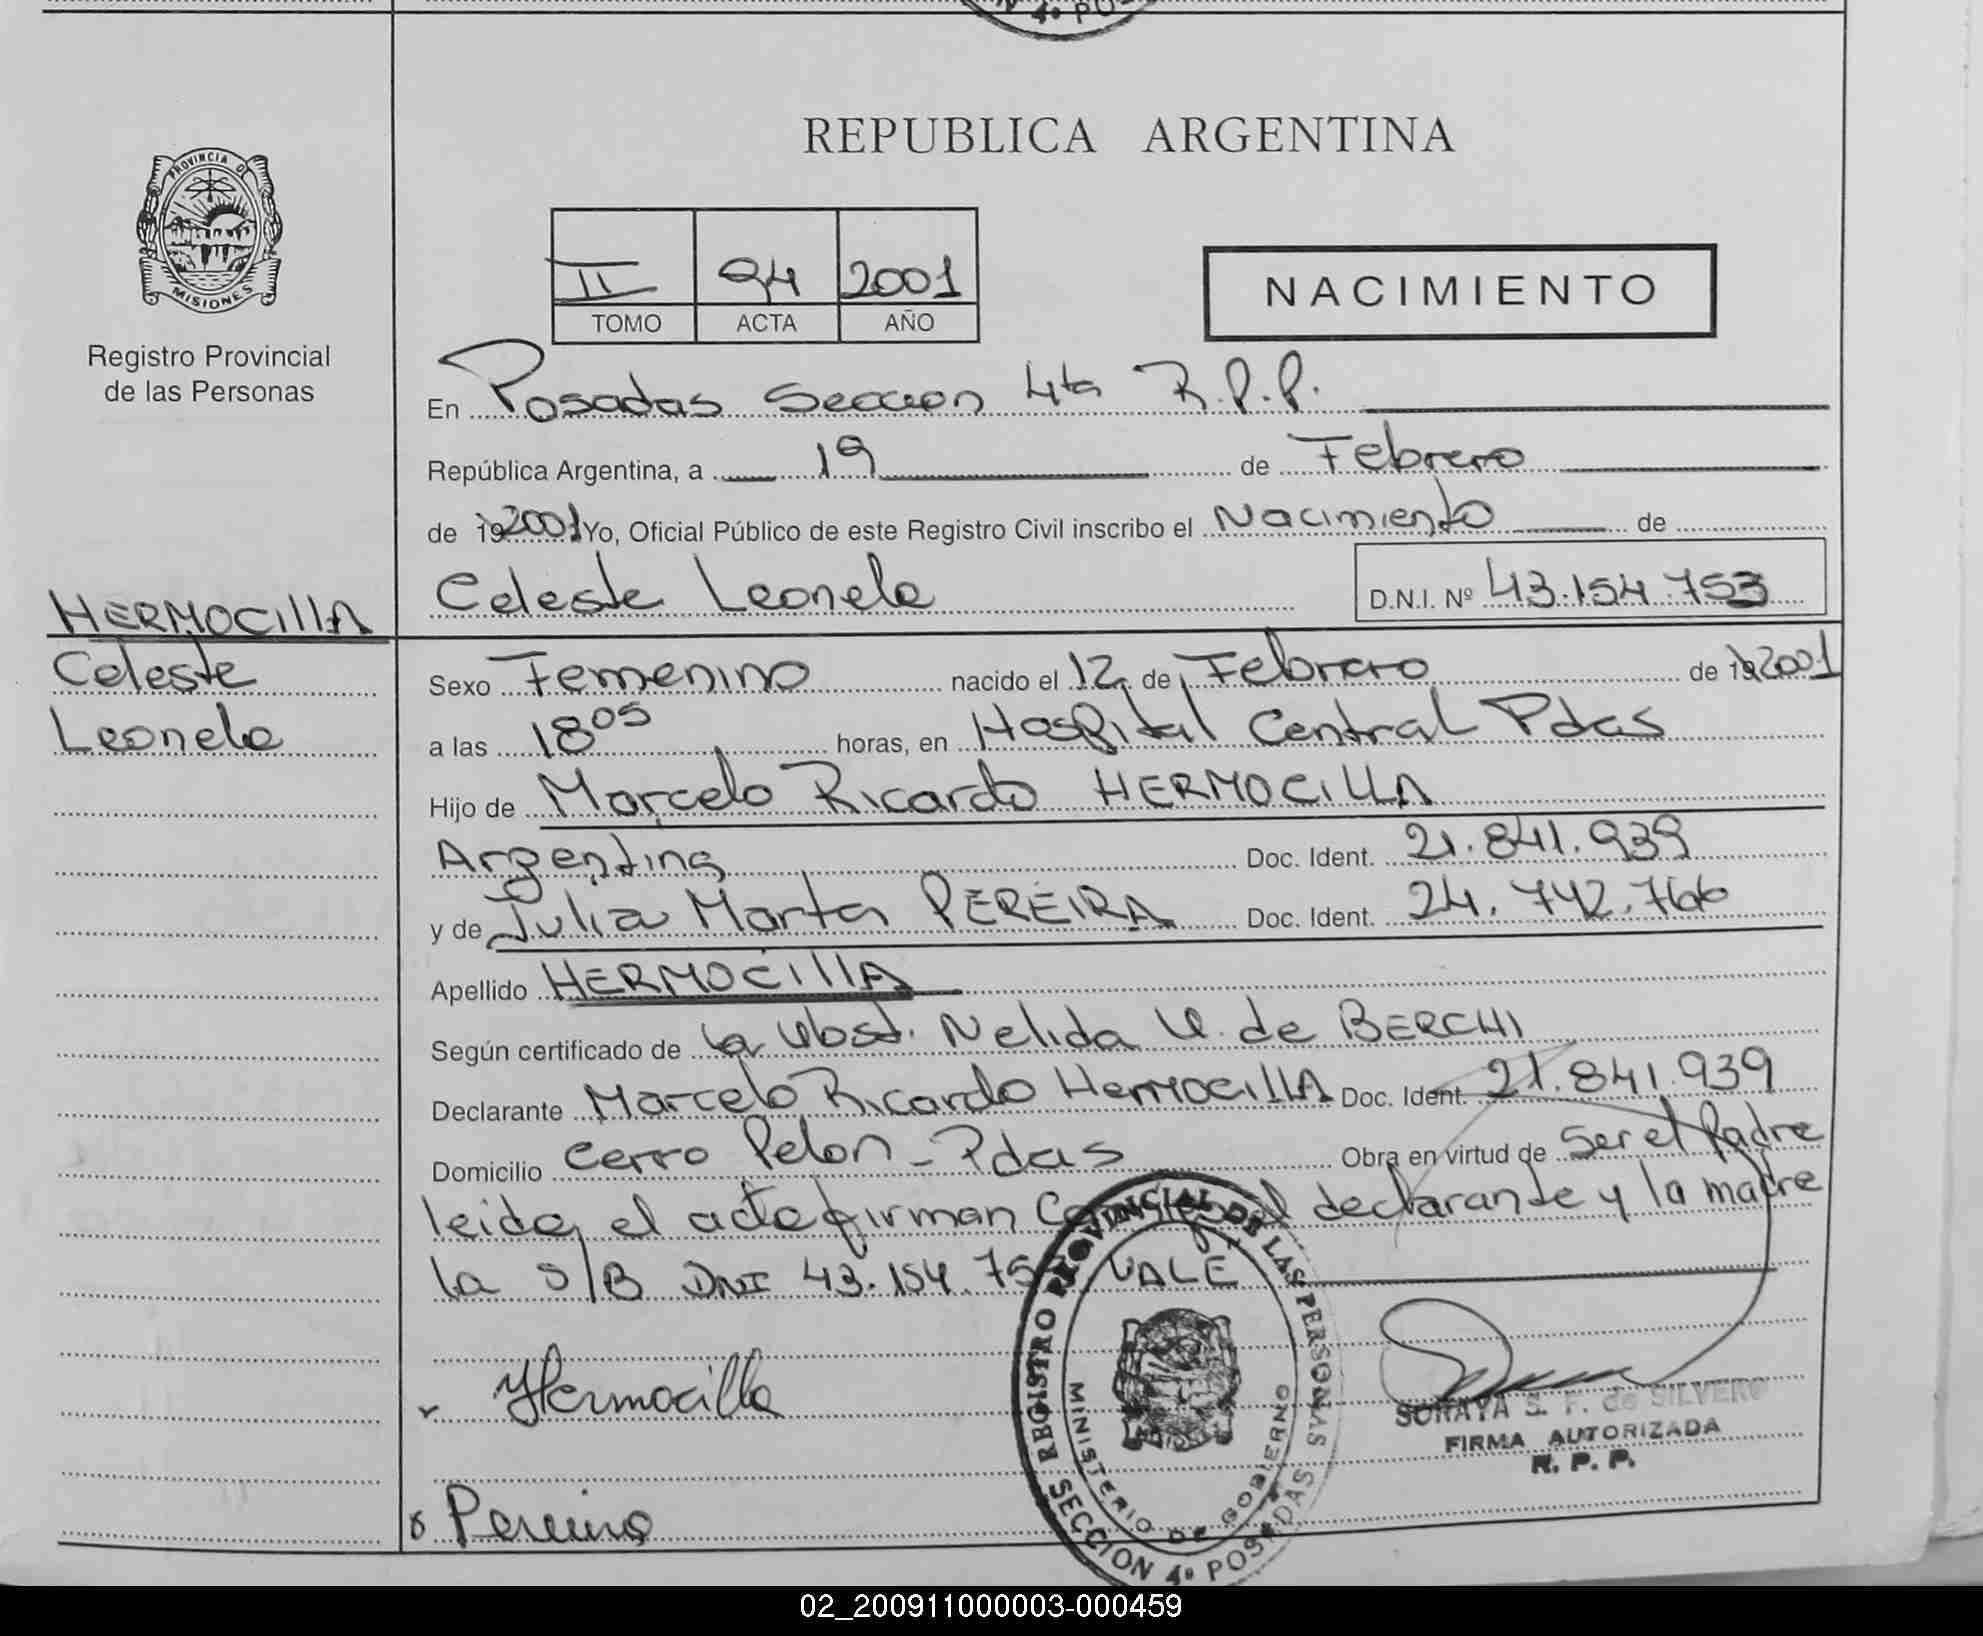 N 4º PO
PROVINCIA DE
MISIONES
Registro Provincial
de las Personas
REPUBLICA ARGENTINA
II 94 2001
TOMO ACTA AÑO
NACIMIENTO
En Posadas Seccion 4ta R.P.P.
República Argentina, a 19 de Febrero
de 192001 Yo, Oficial Público de este Registro Civil inscribo el Nacimiento de
Celeste Leonela D.N.I. Nº 43.154.753
HERMOCIllA
Celeste
Leonela
Sexo Femenino nacido el 12 de Febrero de 192001
a las 18 05 horas, en Hospital Central Pdas
Hijo de Marcelo Ricardo HERMOCILLA
Argentina Doc. Ident. 21.841.939
y de Julia Marta PEREIRA Doc. Ident. 24.742.766
Apellido HERMOCIllA
Según certificado de la Obst. Nelida de BERCHI
Declarante Marcelo Ricardo HermocillA Doc. Ident. 21.841.939
Domicilio Cerro Pelon - Pdas Obra en virtud de ser el Padre
leida el acta firman el declarante y la madre
la S/B DNI 43.154.75 VALE
Hermocilla
Pereira
REGISTRO PROVINCIAL DE LAS PERSONAS
MINISTERIO DE GOBIERNO
SECCION 4º POSADAS
SORAYA S. F. de SILVERO
FIRMA AUTORIZADA
R. P. P.
02_200911000003-000459